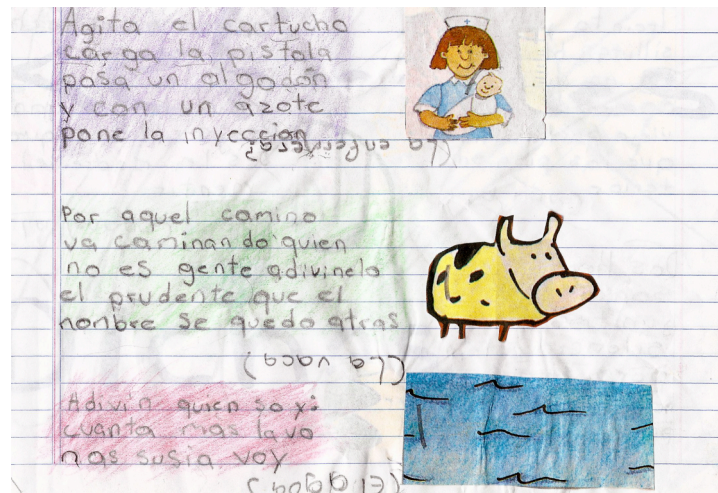 Agita el cartucho
carga la pistola
pasa un algodón
y con un azote
pone la inyeccion
(La enfermera)
Por aquel camino
va caminando quien
no es gente adivinelo
el prudente que el
nombre se quedo atras
(La vaca)
Adivin quien soy:
cuanta mas lavo
mas susia voy
(El agua)